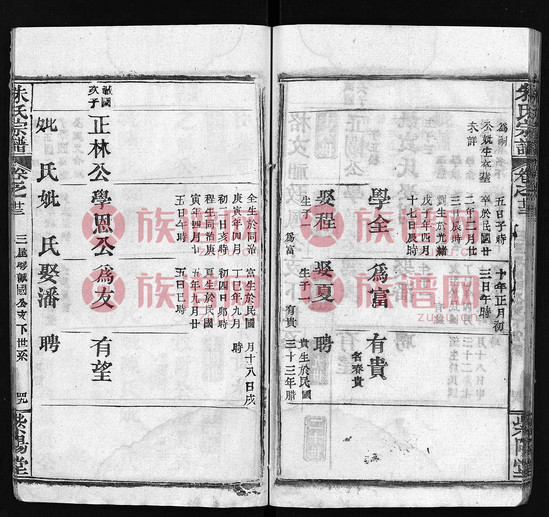 朱氏宗譜
卷之廿三
紫陽堂
學全
為富
有貴
名泰貴
娶程
娶夏
聘
生子一
為富
生子一
有貴
貴生於民國
三十三年腊
月十八日戌
時
五日子時
十年正月初
卒於民國廿
三日午時
二年二月廿
三辰時
劉生於光緒
戊寅年四月
十七日辰時
未詳
全生於同治
庚寅年四月
初一日亥時
程生同治庚
寅年四月十
五日午時
富生於光緒
丁巳年九月
初四日卯時
夏生於民國
五年九月廿
五日巳時
獻國
次子
正林公
學恩公
為友
有望
妣 氏
妣 氏
娶潘
聘
朱氏宗譜
卷之廿三
三屆彤獻國公支下世系
四九
紫陽堂
族譜网
zupu.cn